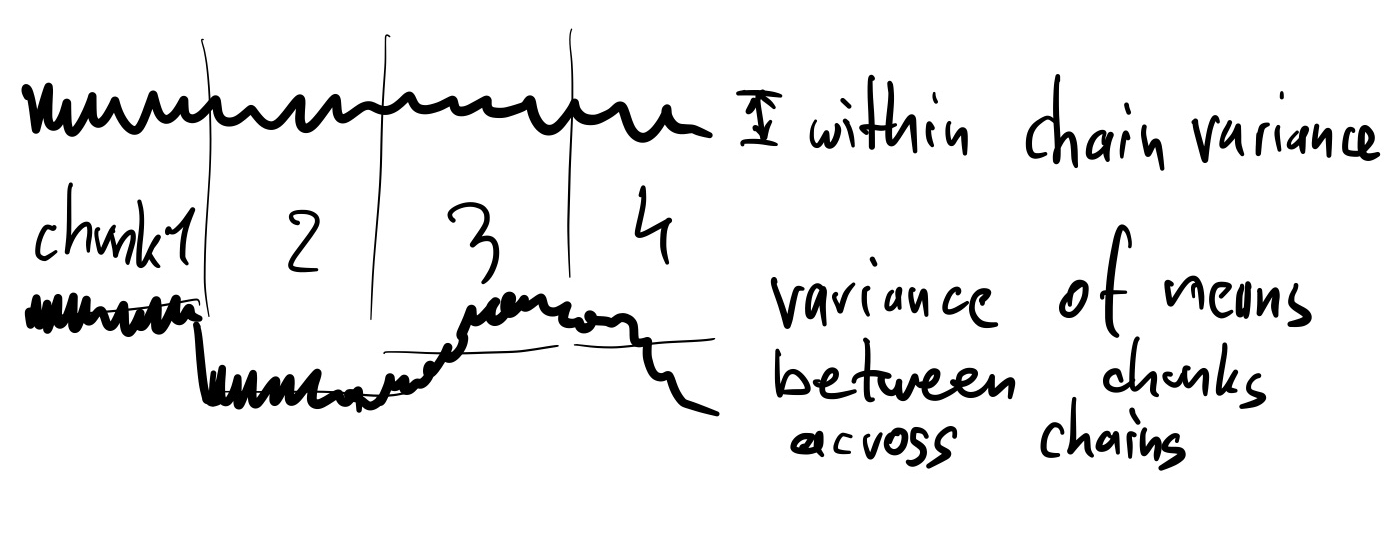 within chain variance
chunk 1 2 3 4
variance of means
between chunks
across chains